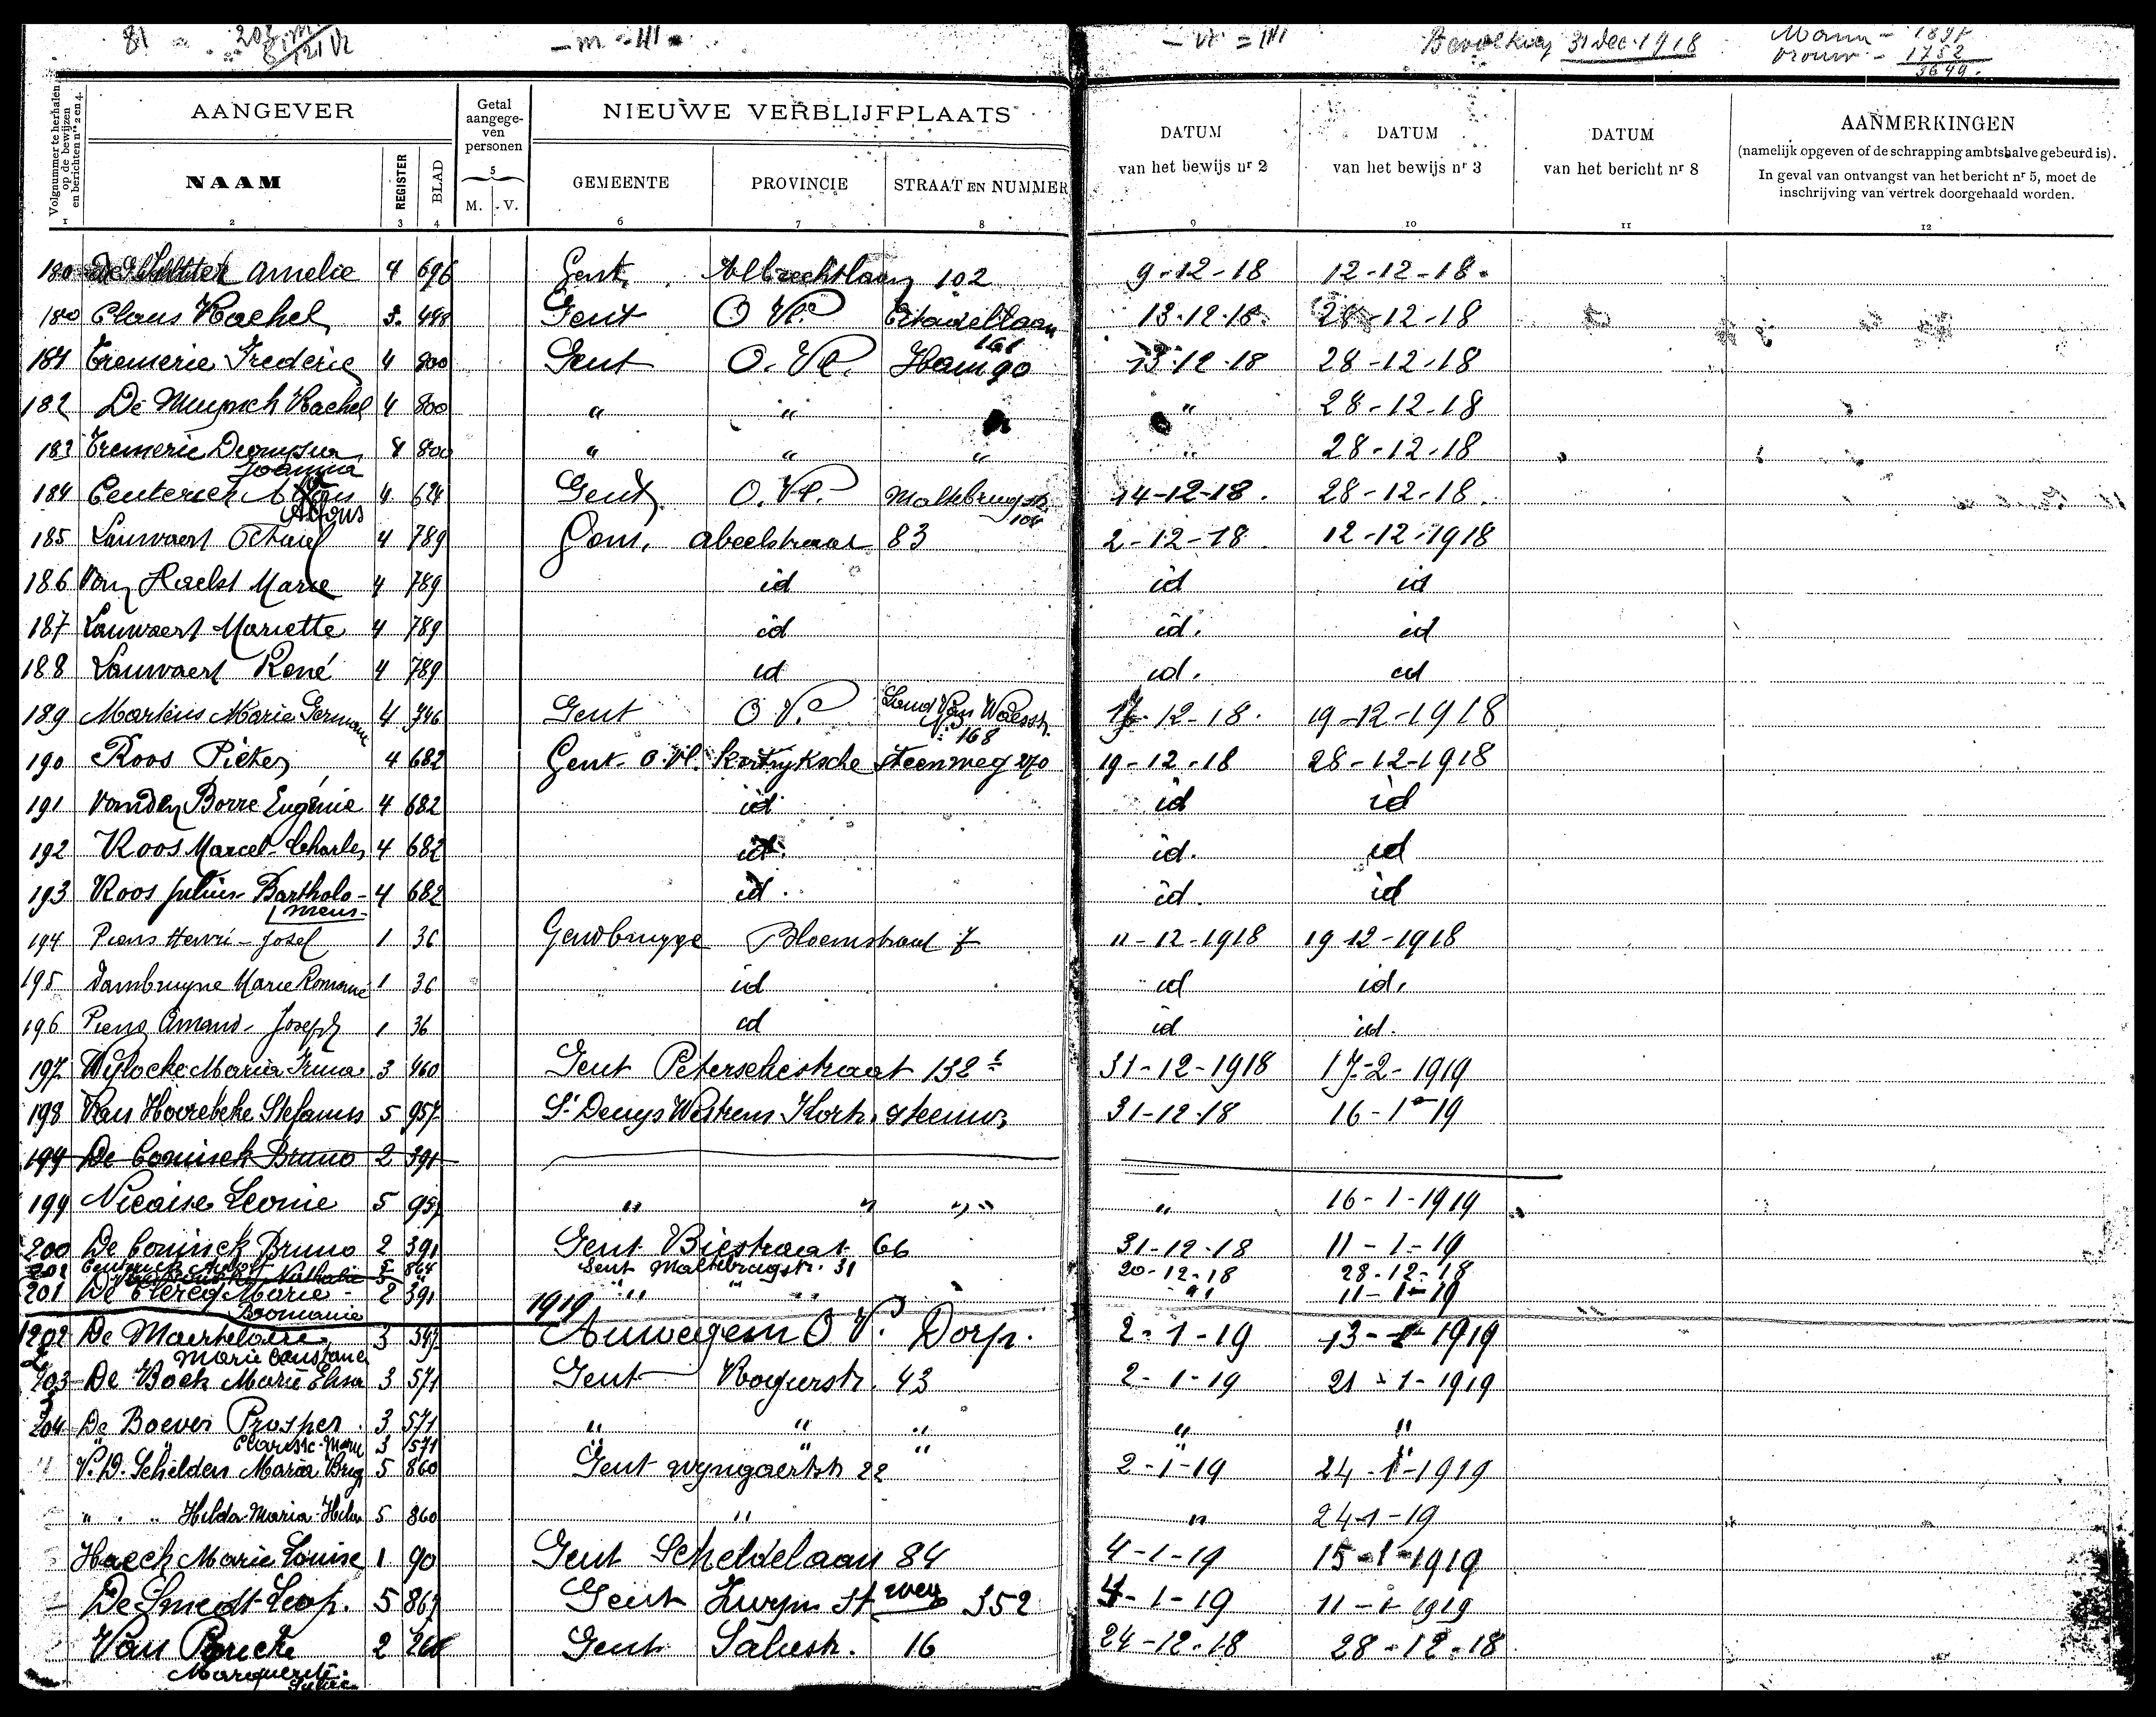 81 = 203 m / 121 Vr — m = 141 — vr = 141 Bevolking 31 Dec. 1918 Mann - 1897
vrouw - 1752
3649.
Volgnummer te herhalen op de bewijzen en berichten nrs 2 en 4.
AANGEVER
Getal aangege-ven personen
NIEUWE VERBLIJFPLAATS
DATUM van het bewijs nr 2
DATUM van het bewijs nr 3
DATUM van het bericht nr 8
AANMERKINGEN
(namelijk opgeven of de schrapping ambtshalve gebeurd is).
In geval van ontvangst van het bericht nr 5, moet de
inschrijving van vertrek doorgehaald worden.
NAAM REGISTER BLAD 5 M. V. GEMEENTE PROVINCIE STRAAT EN NUMMER
1 2 3 4 6 7 8 9 10 11 12
180 Amelie 4 696 Gent Albrechtlaan 102 9-12-18 12-12-18.
180 Claus Rachel 3. 448 Gent O Vl. Citadellaan 161 13.12.18. 28-12-18
181 Tremerie Frederic 4 800 Gent O. Vl. Ham 90 13-12-18 28-12-18
182 De Muynck Rachel 4 800 " " " 28-12-18
183 Tremerie Joanna 4 800 " " " " 28-12-18
184 Alfons 4 624 Gent O. Vl. Maltebrugstr 104 14-12-18. 28-12-18.
185 Lauwaert Octaief 4 789 Gent, abeelstraat 83 2-12-18 12-12-1918
186 Van Haelst Marie 4 789 id id id
187 Lauwaert Mariette 4 789 id id. id
188 Lauwaert René 4 789 id id. id
189 Martens Marie Germaine 4 746 Gent O V. Land Van Waesstr. 168 17-12-18. 19-12-1918
190 Roos Pieter 4 682 Gent - O. Vl. Kortryksche Steenweg 270 19-12-18 28-12-1918
191 Vanden Borre Eugénie 4 682 id id id
192 Roos Marcel-Charles 4 682 id. id. id
193 Roos Julius Bartholo-meus- 4 682 id. id. id
194 Piens Henri-Josef 1 36 Gendbrugge Bloemstraat 7 11-12-1918 19 12-1918
195 Dambruyne Marie Romanie 1 36 id id id.
196 Piens Amand-Joseph 1 36 id id id.
197 Wylocke Maria Irma 3 460 Gent Peterselestraat 132 31-12-1918 17-2-1919
198 Van Hoorebeke Stefanus 5 957 St Denys Westrem Kortr. steenw. 31-12-18 16-1-19
199 De Coninck Bruno 2 391
199 Nicaise Leonie 5 957 " " " " 16-1-1919
200 De Coninck Bruno 2 391 Gent Biestraat 66 31-12-18 11-1-19
201 Nathalie 5 864 Gent Maltebrugstr. 31 20-12-18 28-12-18
201 De Clercq Marie-Romanie 2 391 " " " " 11-1-19
1919
202 De Maertelaere Marie Constance 3 547 Auwegem O V. Dorp. 2-1-19 13-1-1919
203 De Bock Marie Elisa 3 571 Gent Rogierstr. 43 2-1-19 21-1-1919
204 De Boever Prosper 3 571 " " " " "
" " Clarisse-Marie 3 571 " " " " "
" V. D. Schelden Maria Brig 5 860 Gent wyngaertstr 22 2-1-19 24-1-1919
" " Hilda-Maria-Helena 5 860 " " 24-1-19
Haeck Marie Louise 1 90 Gent Scheldelaan 84 4-1-19 15-1-1919
De Smedt Leop. 5 867 Gent Zwyn St weg 352 4-1-19 11-1-1919
Van Marguerite 2 268 Gent Saliestr. 16 24-12-18 28-12-18